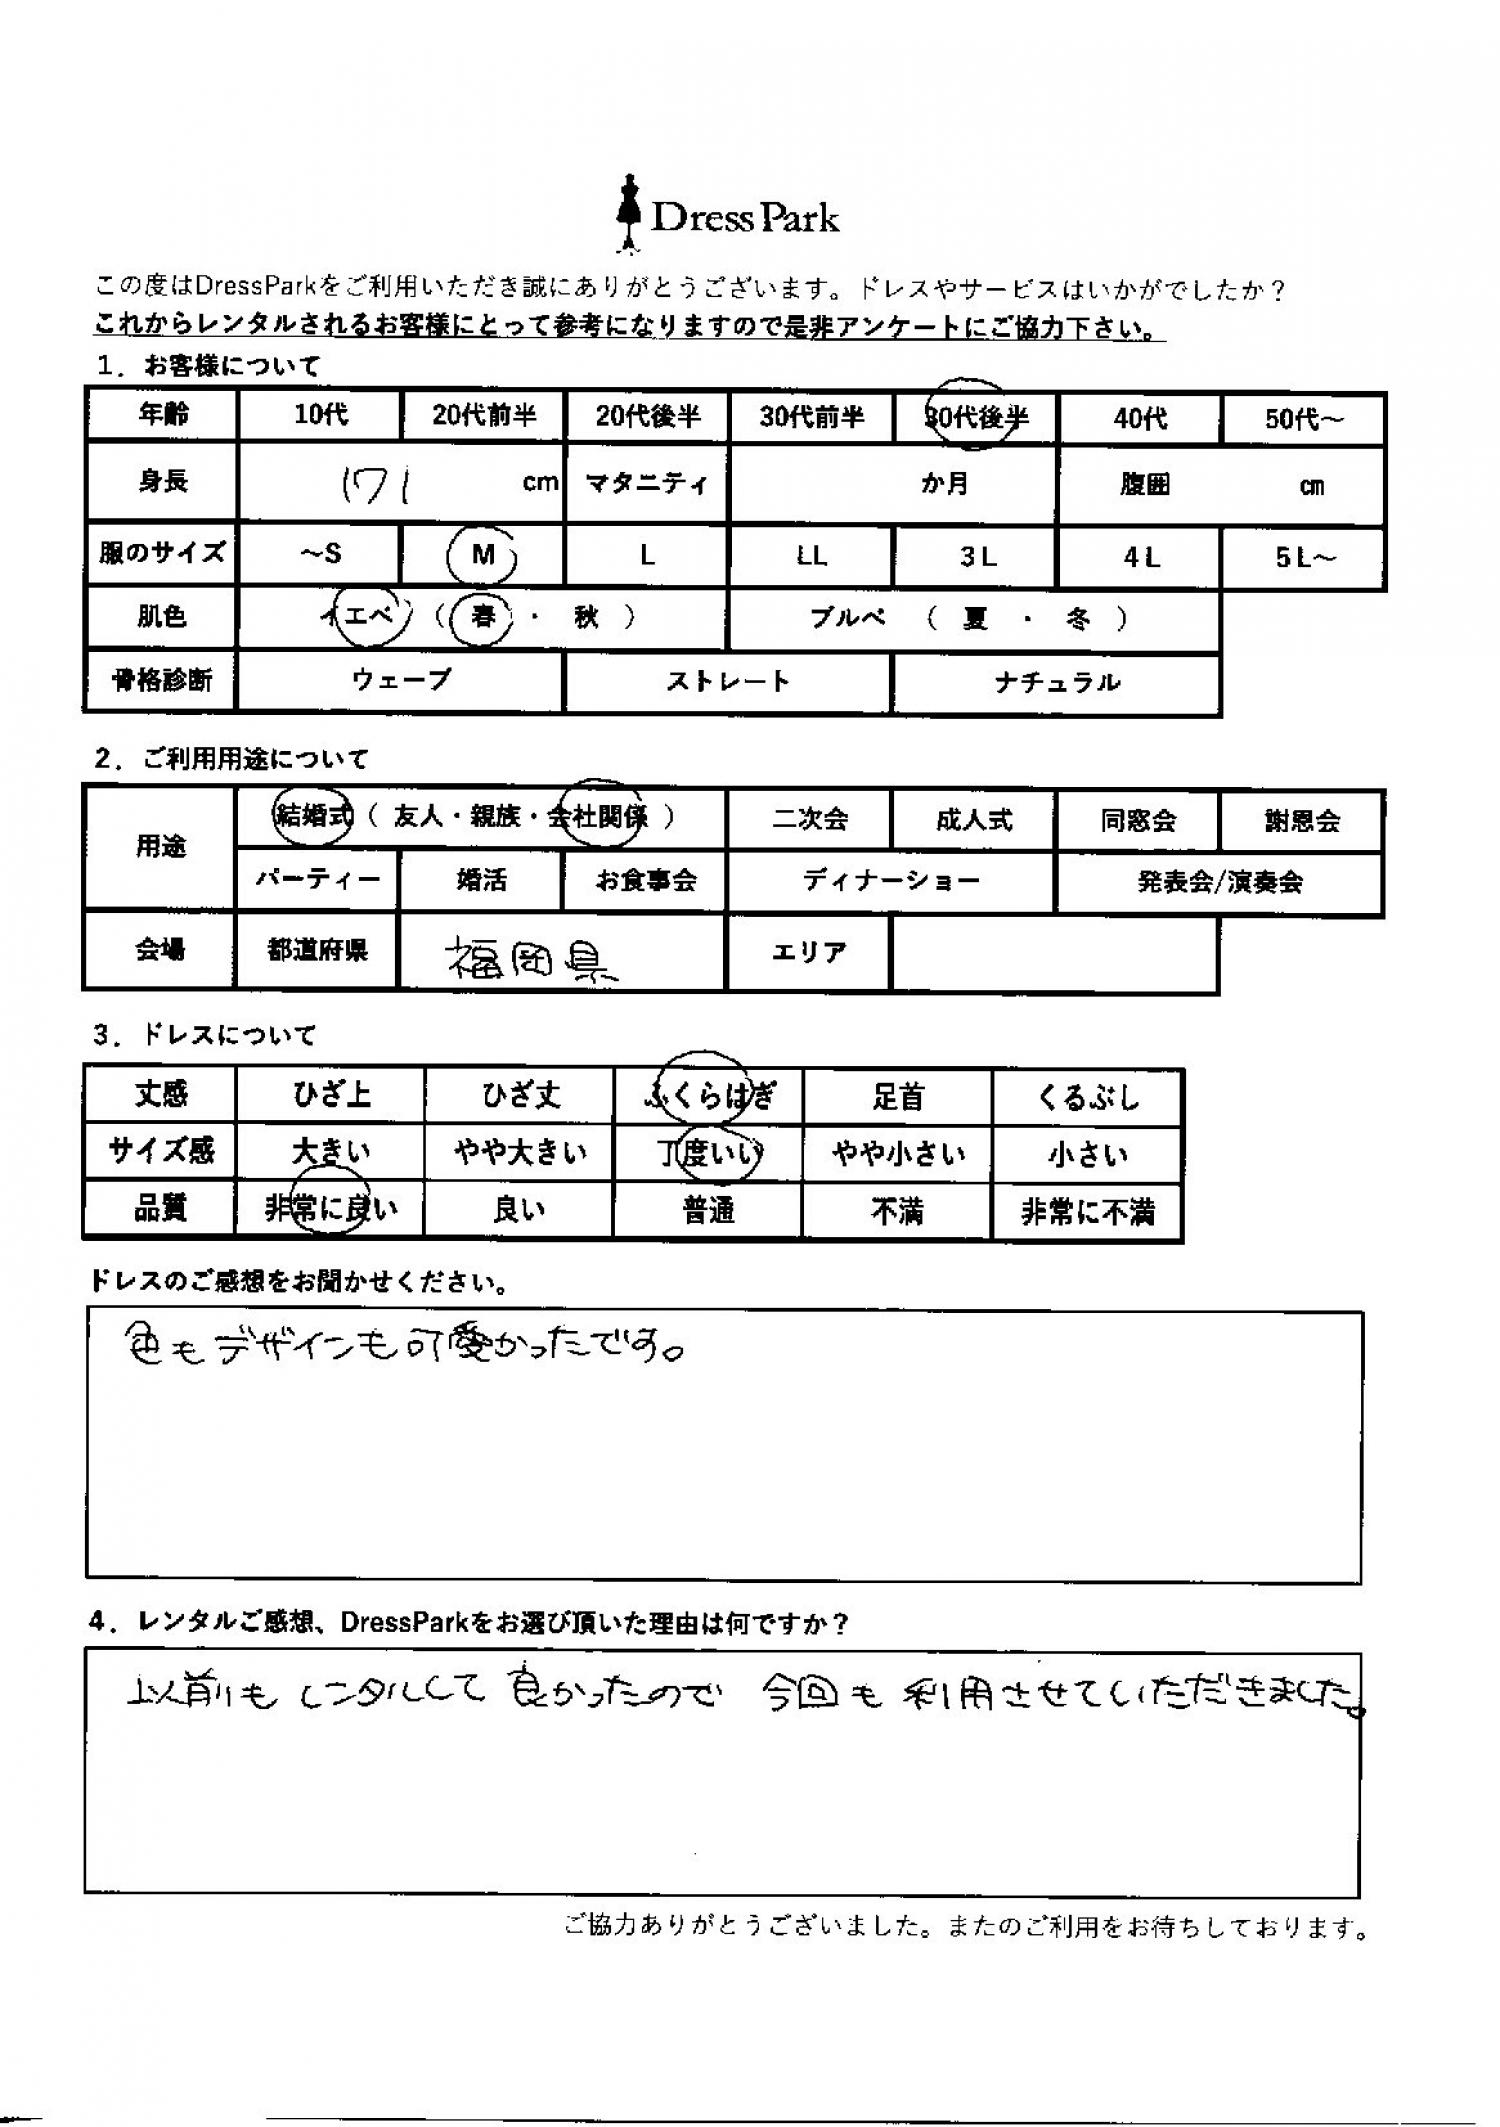 Dress Park
この度はDressParkをご利用いただき誠にありがとうございます。ドレスやサービスはいかがでしたか？
これからレンタルされるお客様にとって参考になりますので是非アンケートにご協力下さい。
１．お客様について
年齢 10代 20代前半 20代後半 30代前半 30代後半 40代 50代～
身長 171 cm マタニティ か月 腹囲 ㎝
服のサイズ ～S M L LL 3L 4L 5L～
肌色 イエベ （ 春 ・ 秋 ） ブルベ （ 夏 ・ 冬 ）
骨格診断 ウェーブ ストレート ナチュラル
２．ご利用用途について
用途 結婚式（ 友人・親族・会社関係 ） 二次会 成人式 同窓会 謝恩会
パーティー 婚活 お食事会 ディナーショー 発表会/演奏会
会場 都道府県 福岡県 エリア
３．ドレスについて
丈感 ひざ上 ひざ丈 ふくらはぎ 足首 くるぶし
サイズ感 大きい やや大きい 丁度いい やや小さい 小さい
品質 非常に良い 良い 普通 不満 非常に不満
ドレスのご感想をお聞かせください。
色もデザインも可愛かったです。
４．レンタルご感想、DressParkをお選び頂いた理由は何ですか？
以前もレンタルして良かったので 今回も利用させていただきました。
ご協力ありがとうございました。またのご利用をお待ちしております。